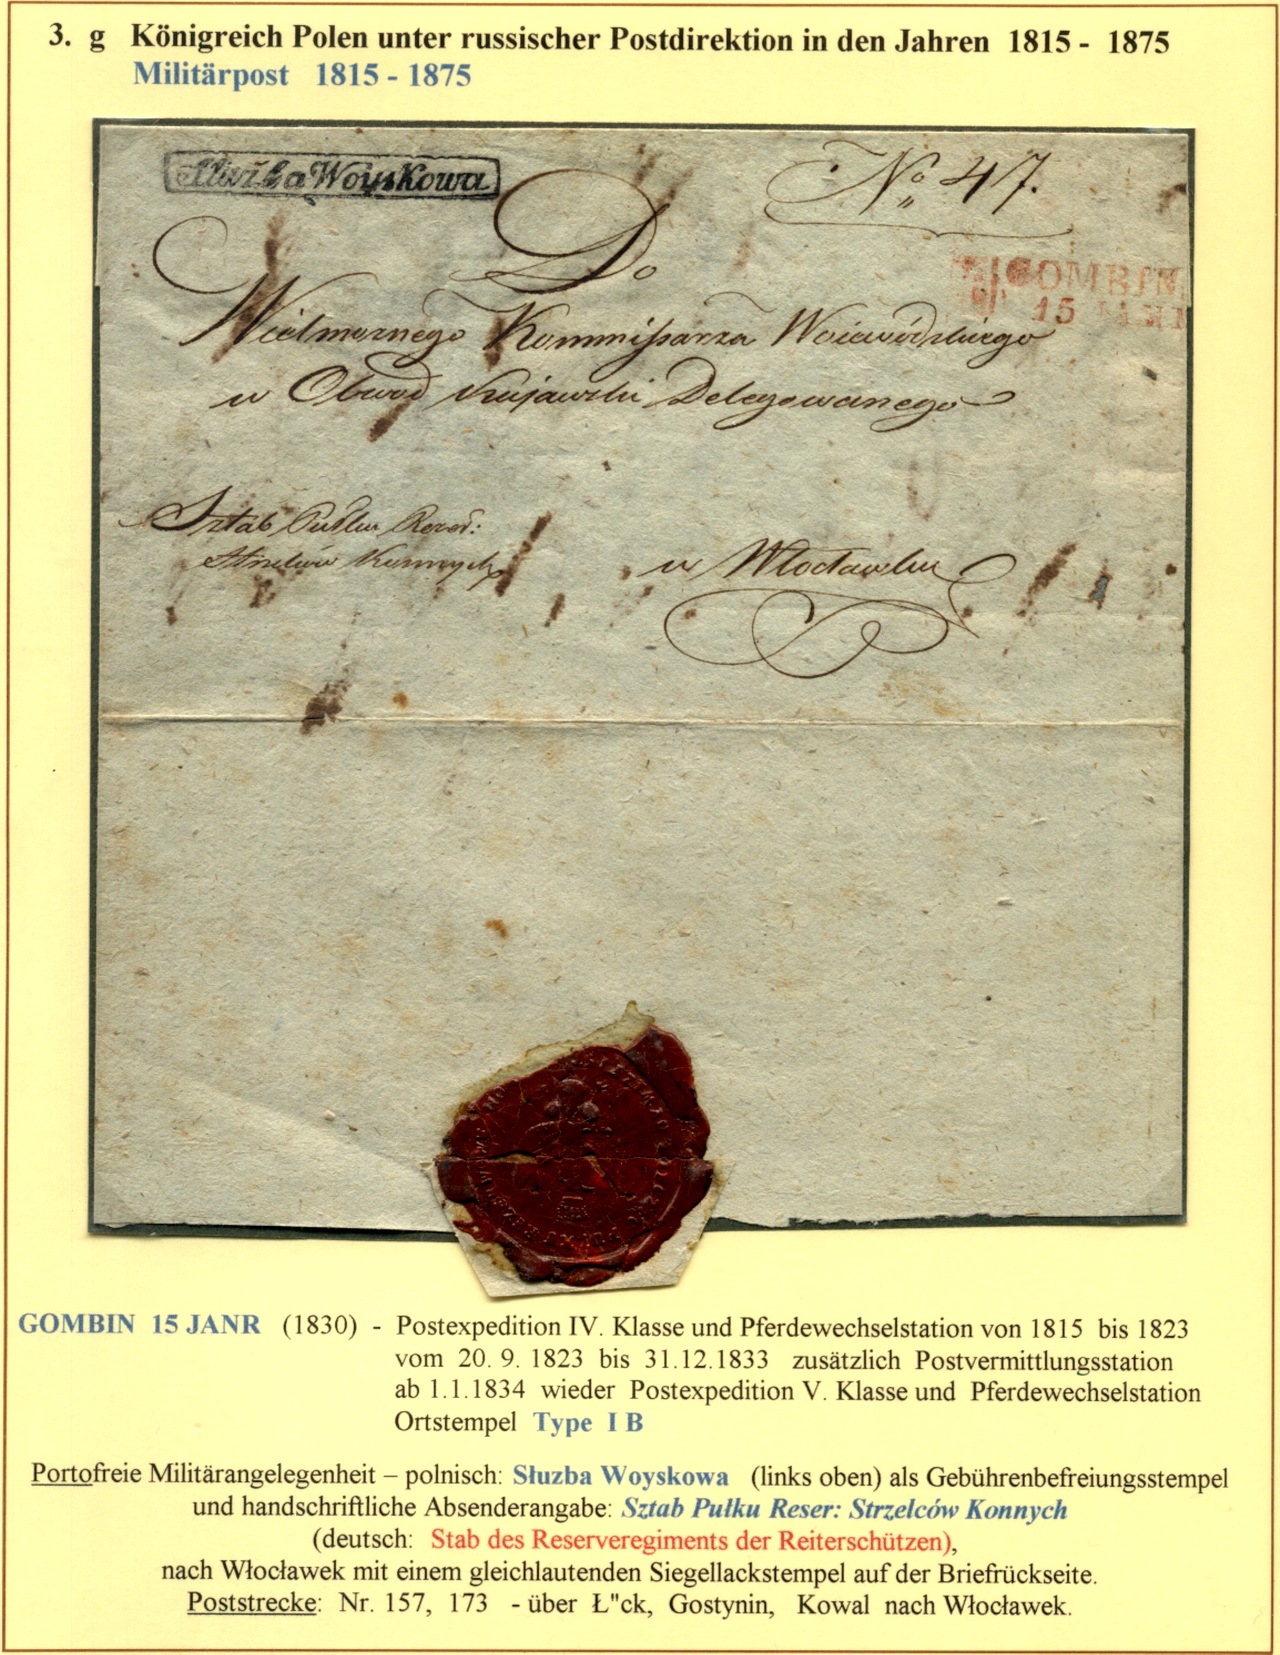 3. g Königreich Polen unter russischer Postdirektion in den Jahren 1815 - 1875
Militärpost 1815 - 1875
Służba Woyskowa
No 47.
Do
GOMBIN
15 JAN
Wielmoznego Kommissarza Woiewódzkiego
w Obwod Kujawski Delegowanego
Sztab Pułku Rezer:
Strzelców Konnych
w Włocławku
GOMBIN 15 JANR (1830) - Postexpedition IV. Klasse und Pferdewechselstation von 1815 bis 1823
vom 20. 9. 1823 bis 31.12.1833 zusätzlich Postvermittlungsstation
ab 1.1.1834 wieder Postexpedition V. Klasse und Pferdewechselstation
Ortstempel Type I B
Portofreie Militärangelegenheit – polnisch: Słuzba Woyskowa (links oben) als Gebührenbefreiungsstempel
und handschriftliche Absenderangabe: Sztab Pułku Reser: Strzelców Konnych
(deutsch: Stab des Reserveregiments der Reiterschützen),
nach Włocławek mit einem gleichlautenden Siegellackstempel auf der Briefrückseite.
Poststrecke: Nr. 157, 173 - über Ł"ck, Gostynin, Kowal nach Włocławek.